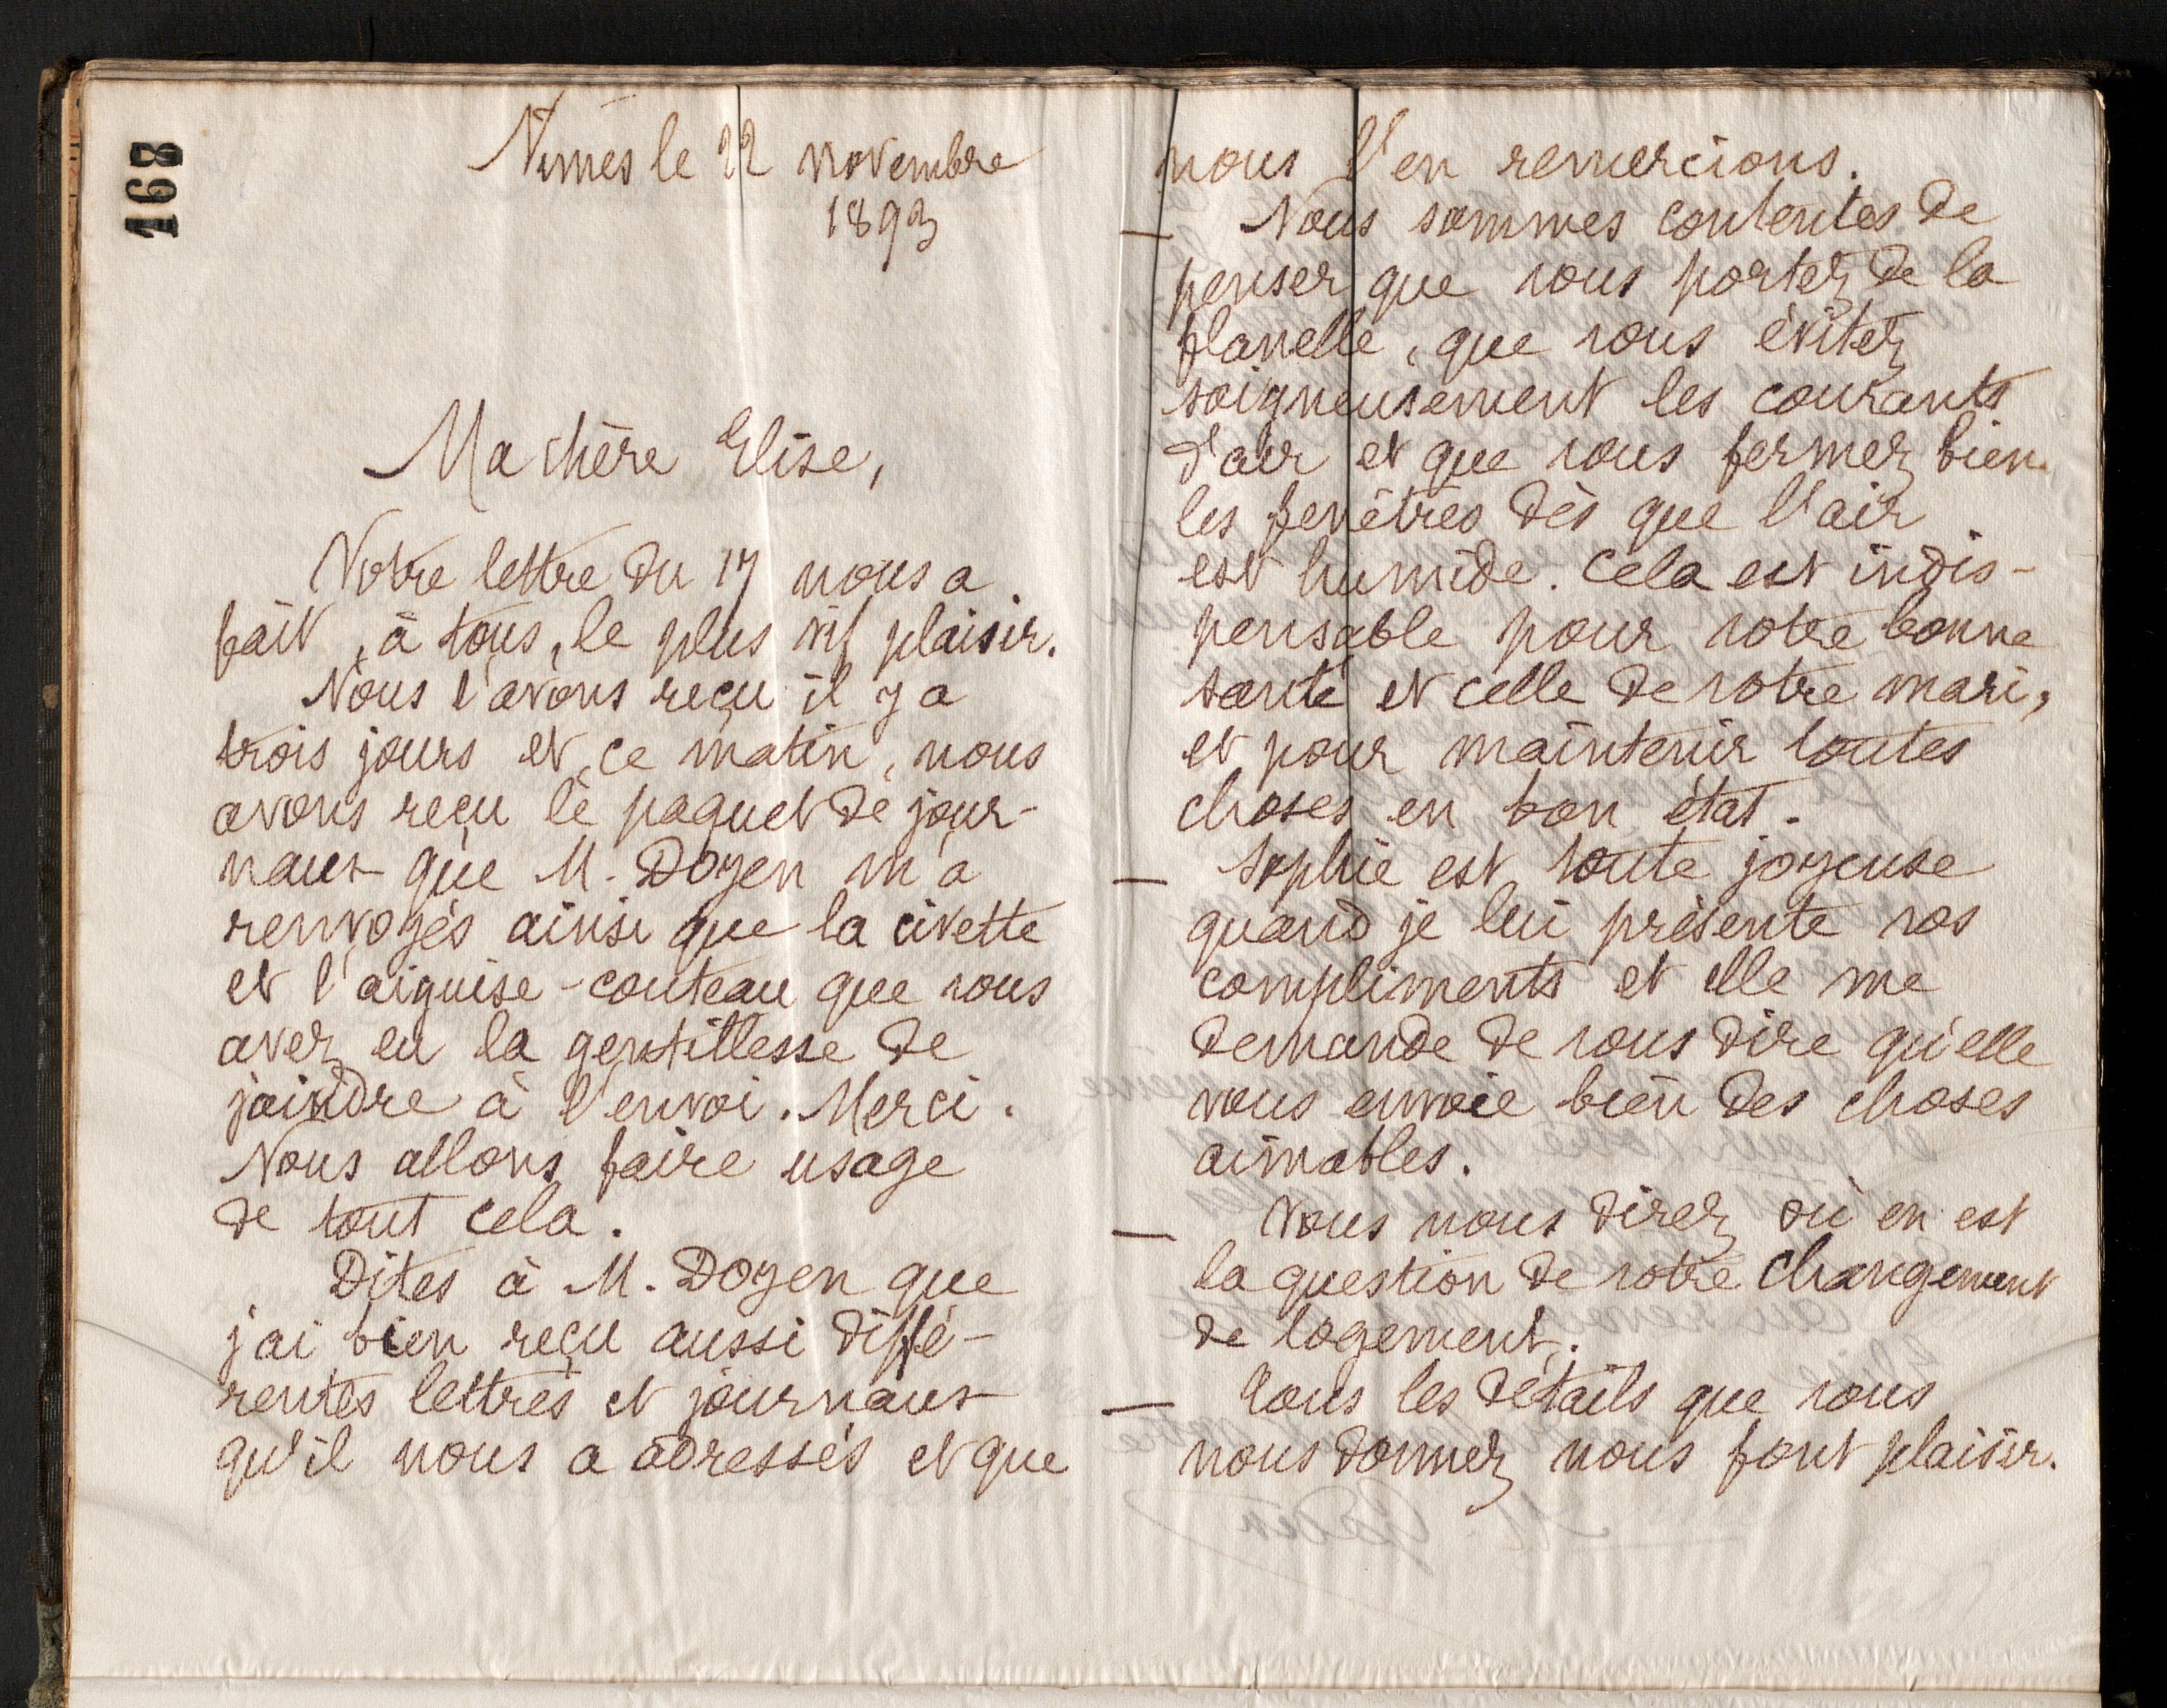 168
Nimes le 22 novembre
1893
Ma chère Elise,
Votre lettre du 17 nous a
fait, à tous, le plus vif plaisir.
Nous l'avons reçu il y a
trois jours et, ce matin, nous
avons reçu le paquet de jour-
naux que M. Doyen m'a
renvoyés ainsi que la civette
et l'aiguise-couteau que vous
avez eu la gentillesse de
joindre à l'envoi. Merci.
Nous allons faire usage
de tout cela.
Dites à M. Doyen que
j'ai bien reçu aussi diffé-
rentes lettres et journaux
qu'il nous a adressés et que
nous l'en remercions.
— Nous sommes contentes de
penser que vous portez de la
flanelle, que vous évitez
soigneusement les courants
d'air et que vous fermez bien
les fenêtres dès que l'air
est humide. Cela est indis-
pensable pour votre bonne
santé et celle de votre mari,
et pour maintenir toutes
choses en bon état.
— Sophie est toute joyeuse
quand je lui présente vos
compliments et elle me
demande de vous dire qu'elle
vous envoie bien des choses
aimables.
— Vous nous direz où en est
la question de votre changement
de logement.
— Tous les détails que vous
nous donnez nous font plaisir.